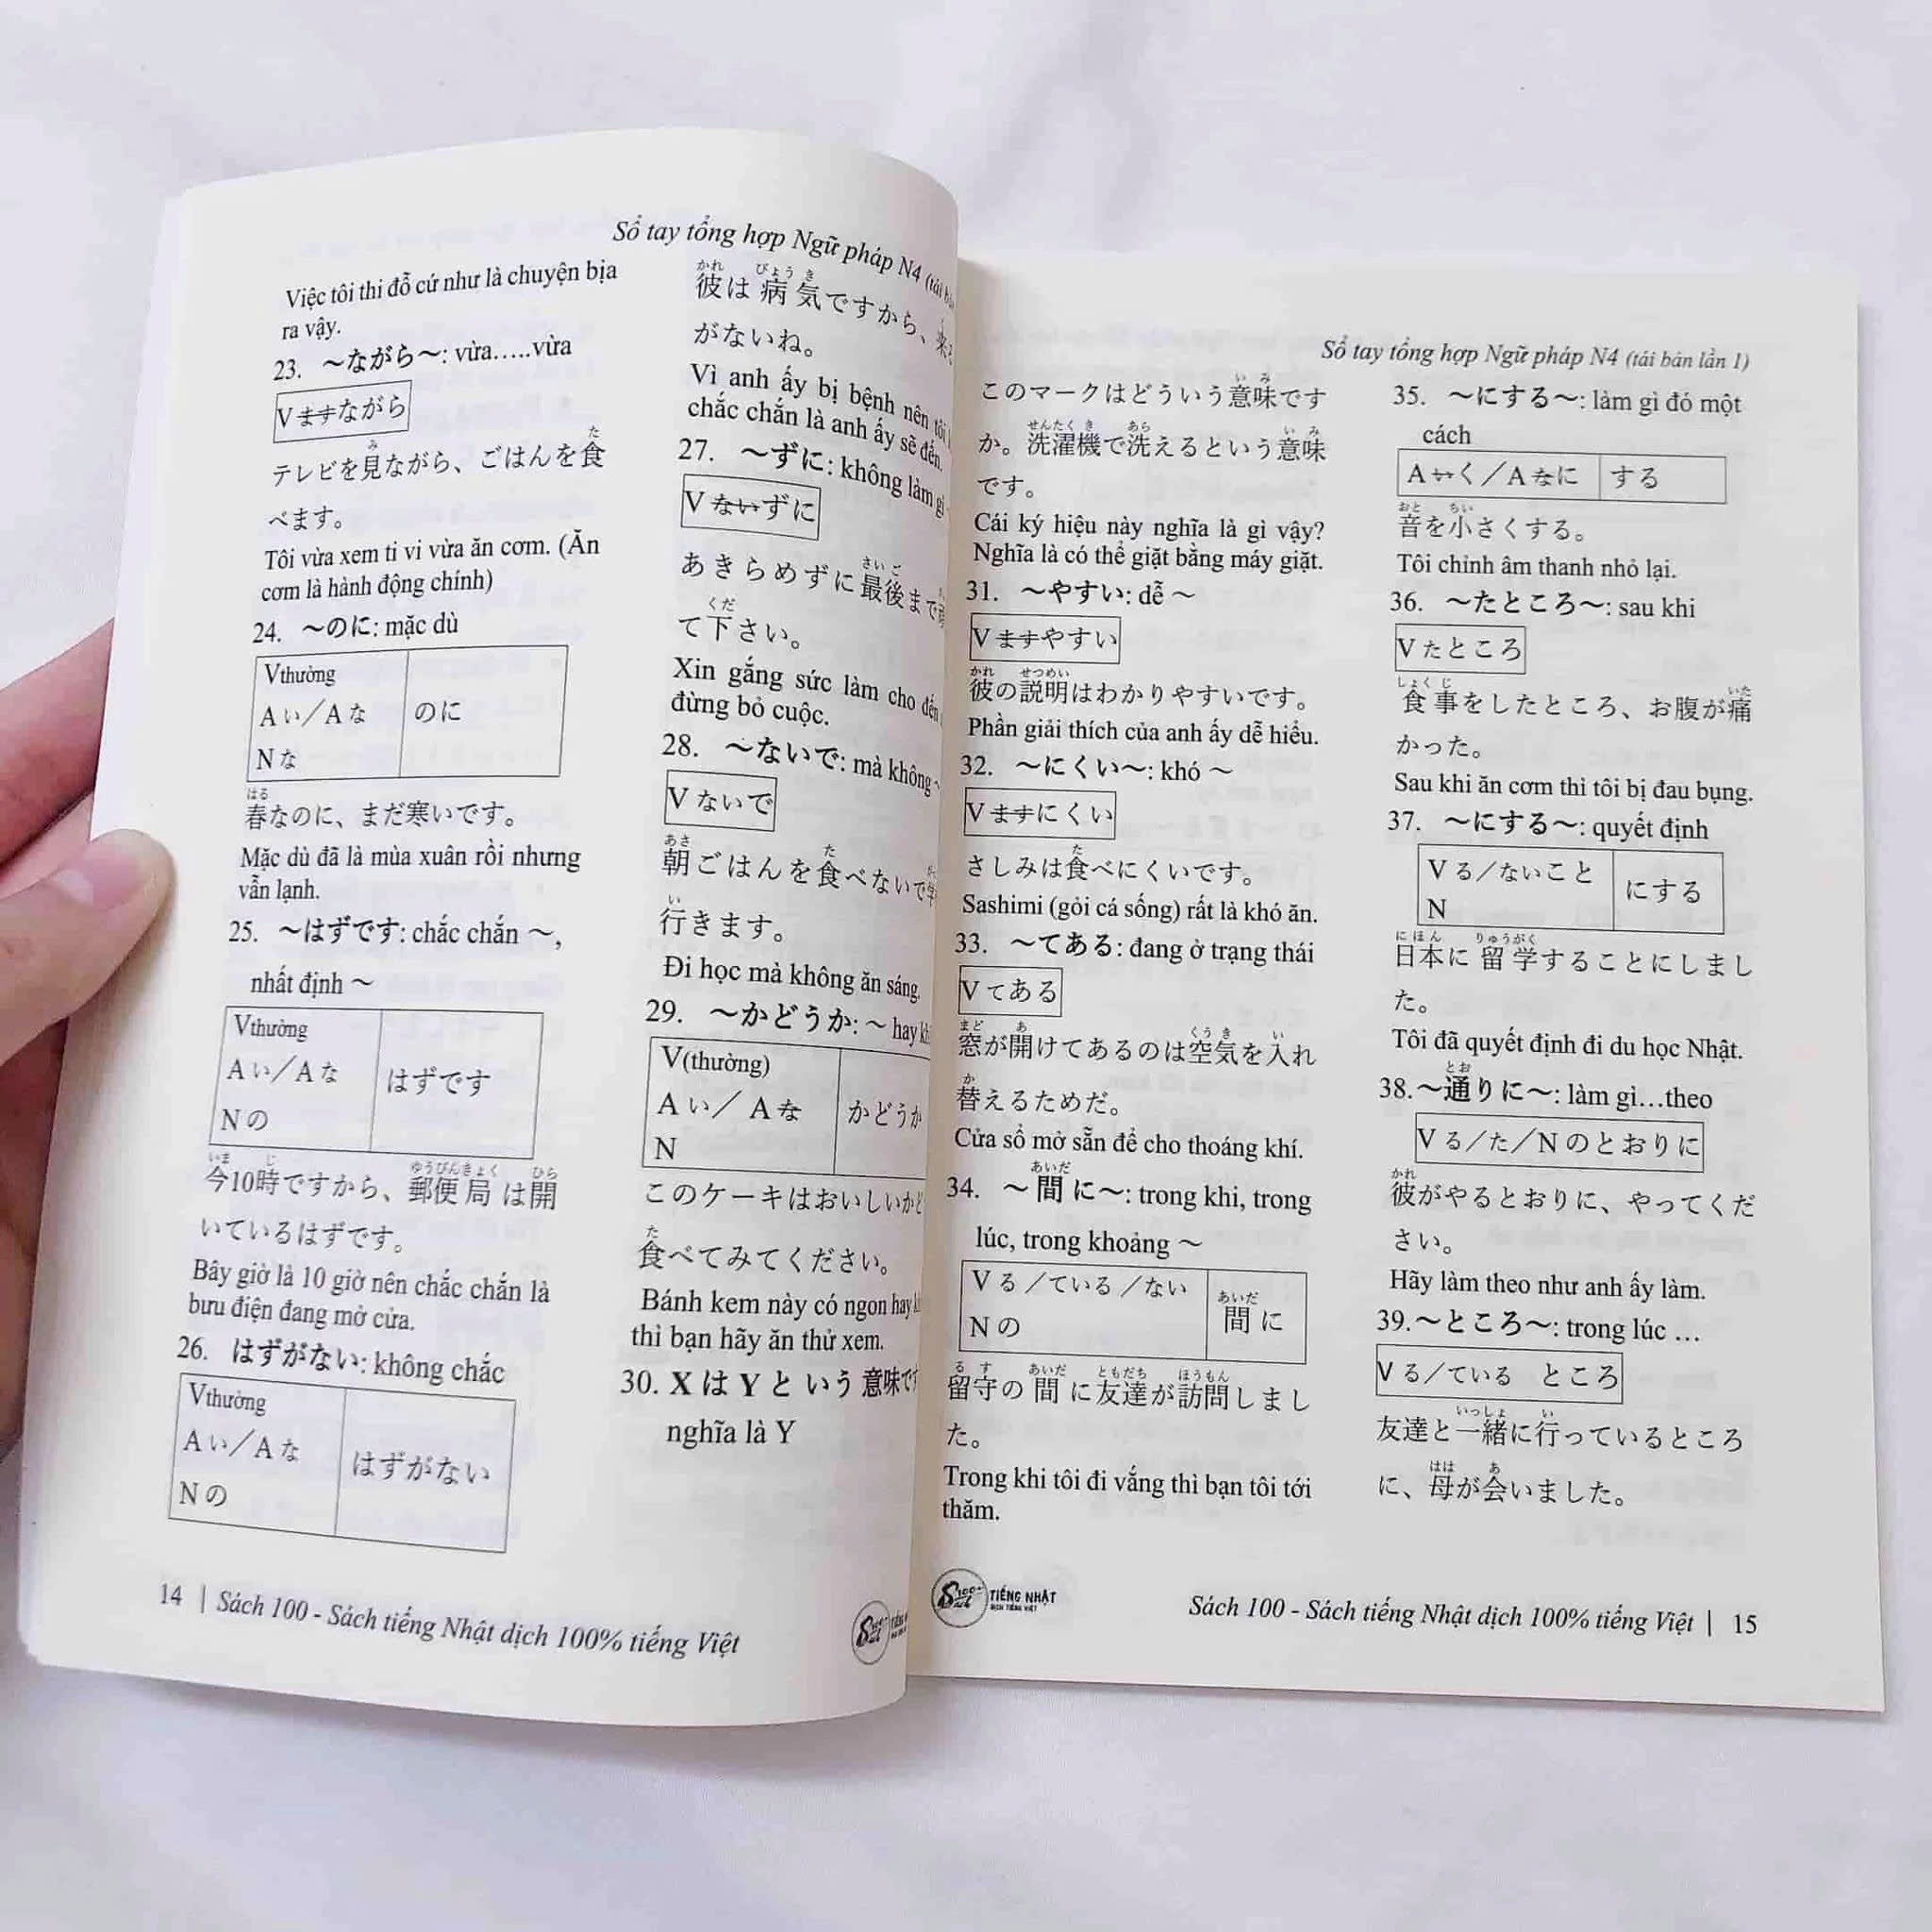 Sổ tay tổng hợp Ngữ pháp N4 (tái
Việc tôi thi đỗ cứ như là chuyện bịa
ra vậy.
23. ～ながら～: vừa…..vừa
Vますながら
テレビを見ながら、ごはんを食
べます。
Tôi vừa xem ti vi vừa ăn cơm. (Ăn
cơm là hành động chính)
24. ～のに: mặc dù
Vthường
Aい／Aな のに
Nな
春なのに、まだ寒いです。
Mặc dù đã là mùa xuân rồi nhưng
vẫn lạnh.
25. ～はずです: chắc chắn ～,
nhất định ～
Vthường
Aい／Aな はずです
Nの
今10時ですから、郵便局は開
いているはずです。
Bây giờ là 10 giờ nên chắc chắn là
bưu điện đang mở cửa.
26. はずがない: không chắc
Vthường
Aい／Aな はずがない
Nの
彼は病気ですから、来
がないね。
Vì anh ấy bị bệnh nên tôi
chắc chắn là anh ấy sẽ đến.
27. ～ずに: không làm gì
Vないずに
あきらめずに最後まで
て下さい。
Xin gắng sức làm cho đến
đừng bỏ cuộc.
28. ～ないで: mà không
Vないで
朝ごはんを食べないで
行きます。
Đi học mà không ăn sáng.
29. ～かどうか: ～ hay
V(thường)
Aい／Aな かどうか
N
このケーキはおいしいか
食べてみてください。
Bánh kem này có ngon hay
thì bạn hãy ăn thử xem.
30. XはYという意味で
nghĩa là Y
14 | Sách 100 - Sách tiếng Nhật dịch 100% tiếng Việt
Sổ tay tổng hợp Ngữ pháp N4 (tái bản lần 1)
このマークはどういう意味です
か。洗濯機で洗えるという意味
です。
Cái ký hiệu này nghĩa là gì vậy?
Nghĩa là có thể giặt bằng máy giặt.
31. ～やすい: dễ ～
Vますやすい
彼の説明はわかりやすいです。
Phần giải thích của anh ấy dễ hiểu.
32. ～にくい～: khó ～
Vますにくい
さしみは食べにくいです。
Sashimi (gỏi cá sống) rất là khó ăn.
33. ～てある: đang ở trạng thái
Vてある
窓が開けてあるのは空気を入れ
替えるためだ。
Cửa sổ mở sẵn để cho thoáng khí.
34. ～間に～: trong khi, trong
lúc, trong khoảng ～
Vる／ている／ない 間に
Nの
留守の間に友達が訪問しまし
た。
Trong khi tôi đi vắng thì bạn tôi tới
thăm.
35. ～にする～: làm gì đó một
cách
Aいく／Aなに する
音を小さくする。
Tôi chỉnh âm thanh nhỏ lại.
36. ～たところ～: sau khi
Vたところ
食事をしたところ、お腹が痛
かった。
Sau khi ăn cơm thì tôi bị đau bụng.
37. ～にする～: quyết định
Vる／ないこと にする
N
日本に留学することにしまし
た。
Tôi đã quyết định đi du học Nhật.
38.～通りに～: làm gì…theo
Vる／た／Nのとおりに
彼がやるとおりに、やってくだ
さい。
Hãy làm theo như anh ấy làm.
39.～ところ～: trong lúc …
Vる／ている ところ
友達と一緒に行っているところ
に、母が会いました。
TIẾNG NHẬT
Sách 100 - Sách tiếng Nhật dịch 100% tiếng Việt | 15